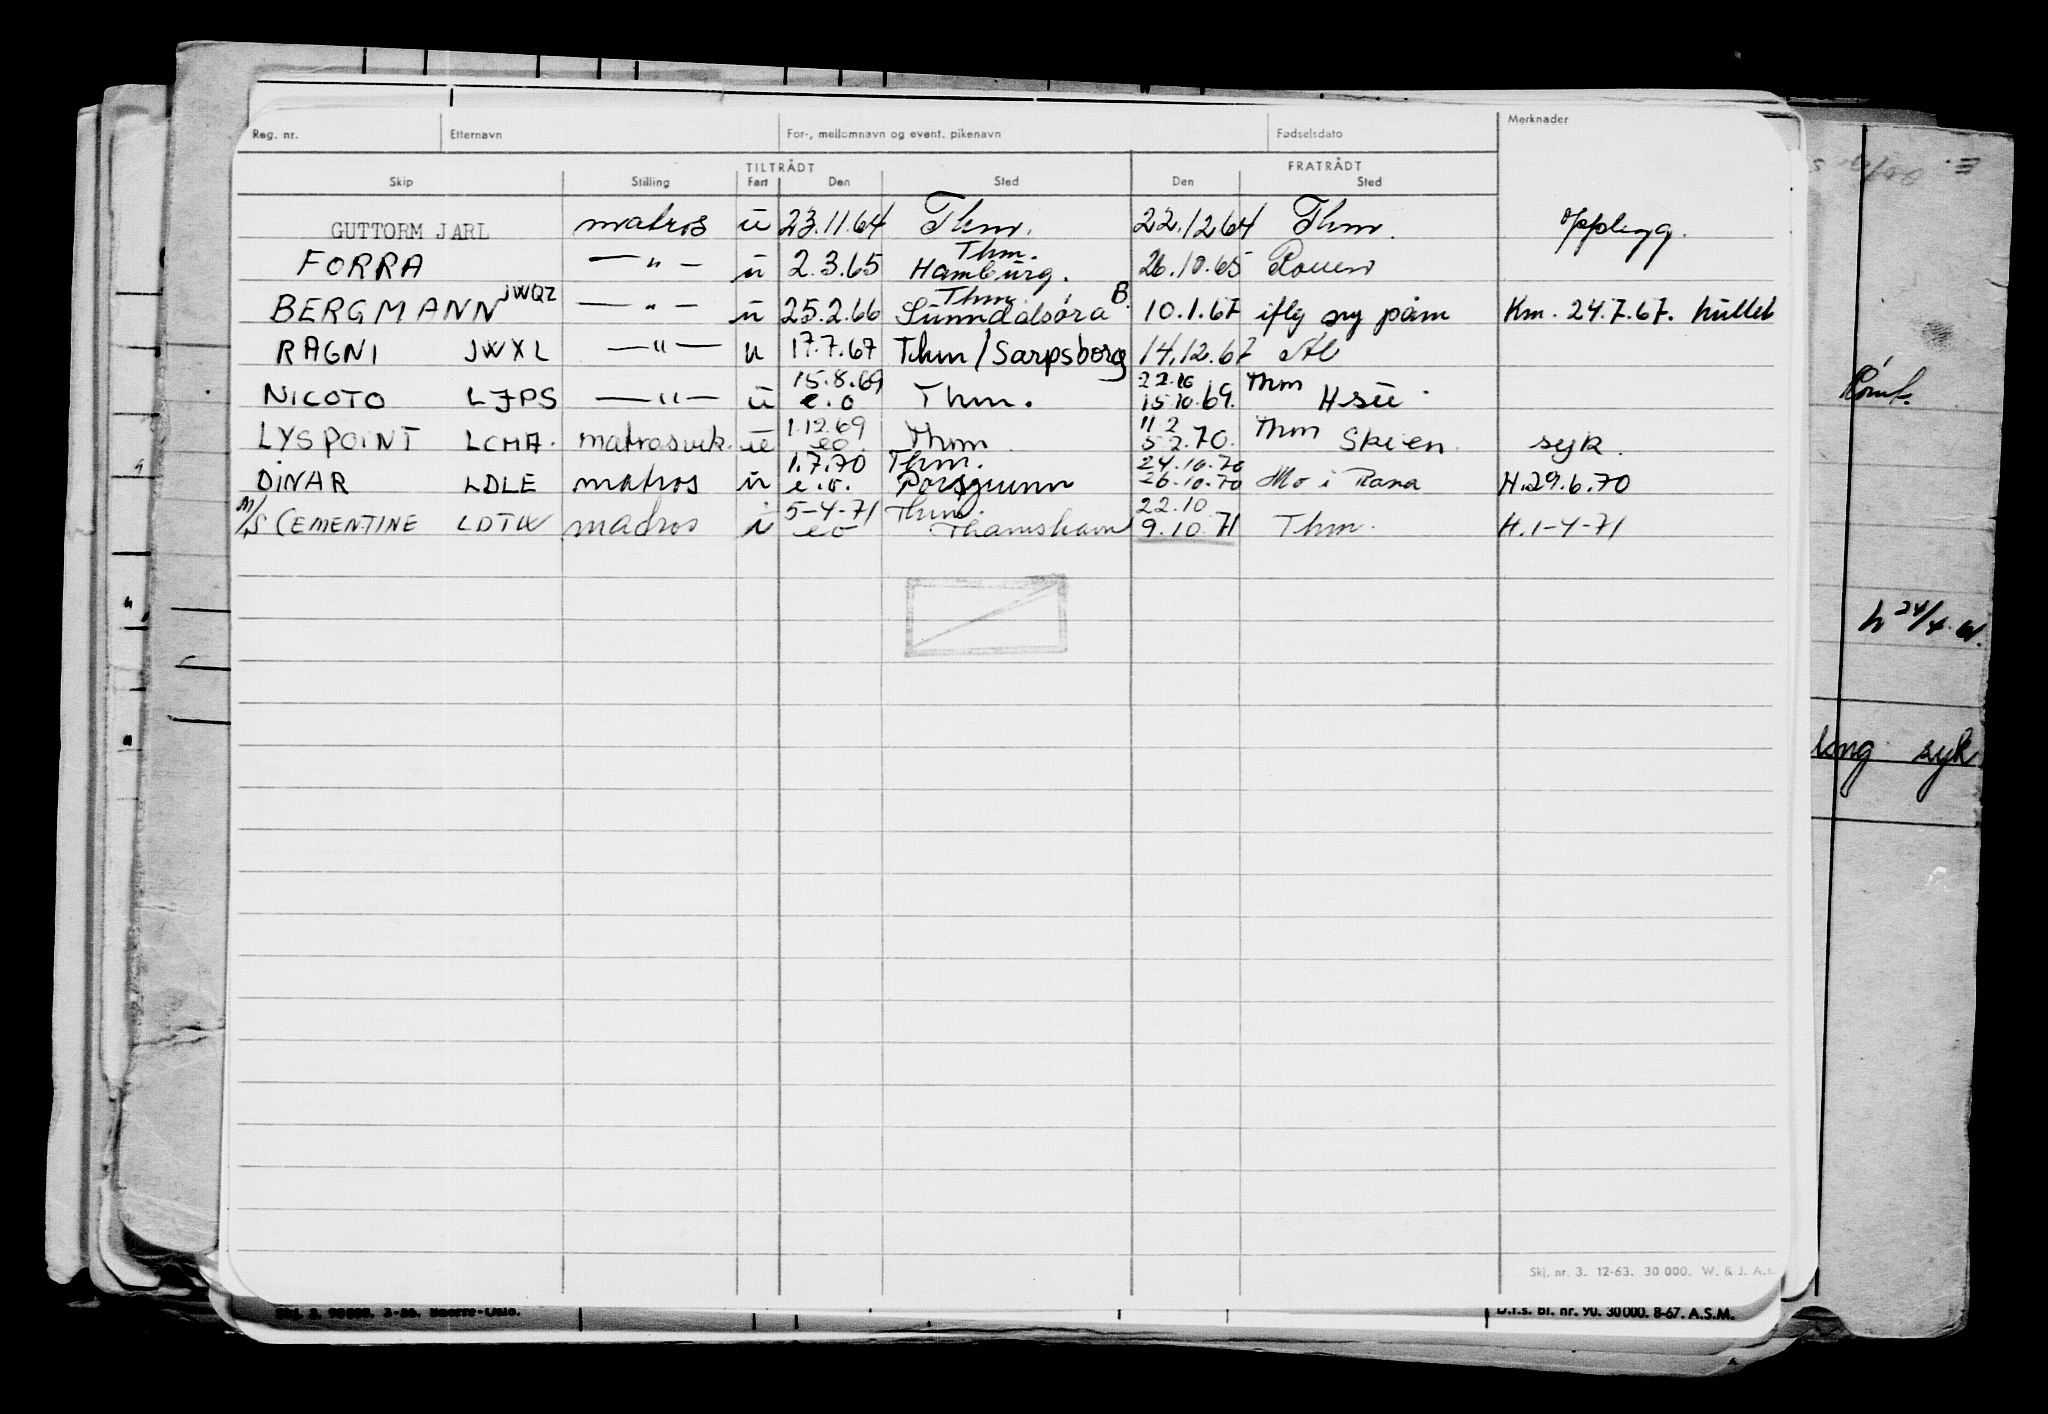 Reg. nr. Etternavn For-, mellomnavn og event. pikenavn Fødselsdato Merknader
TILTRÅDT FRATRÅDT
Skip Stilling Fart Den Sted Den Sted
GUTTORM JARL matros u 23.11.64 Thm. 22.12.64 Thm. opplegg.
FORRA —"— u 2.3.65 Thm. Hamburg. 26.10.65 Rouen
BERGMANN JWQZ —"— u 25.2.66 Thm. Sunndalsøra B. 10.1.67 iflg ny påm Km. 24.7.67. hullet
RAGNI JWXL —"— u 17.7.67 Thm/Sarpsborg 14.12.67 Ål
NICOTO LJPS —"— u 15.8.69 e.o Thm. 22.10 15.10.69. Thm Hsu.
LYSPOINT LCMA. matrosvik. u 1.12.69 eo Thm 11 2 5 2.70. Thm Skien syk.
DINAR LDLE matros u 1.7.70 e.o. Thm. Porsgrunn 24.10.70 26.10.70 Mo i Rana H.29.6.70
M/S CEMENTINE LDTW matros i 5-4-71 eo Thm. Thamshavn 22.10 9.10.71 Thm. H.1-4-71
h 24/4.61.
syk
Skj. nr. 3. 12-63. 30 000. W. & J. A.s.
D.f.s. Bl. nr. 90. 30000. 8-67. A.S.M.